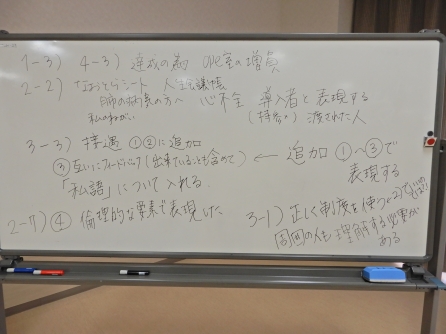 1-3) 4-3) 達成の為 OPE室の増員
2-2) なおとらシート 人生会議
師の病気の方へ 心不全 導入者と表現する
私のねがい (持参の) 渡された人
3-3) 接遇 ①②に追加
③互いにフィードバック(出来ていることも含めて) ← 追加 ①へ③で
表現する
「私語」について入れる
2-7) ④ 倫理的な要素で表現した
3-1) 正しく制度を使う
周囲の人も理解する必要が
ある